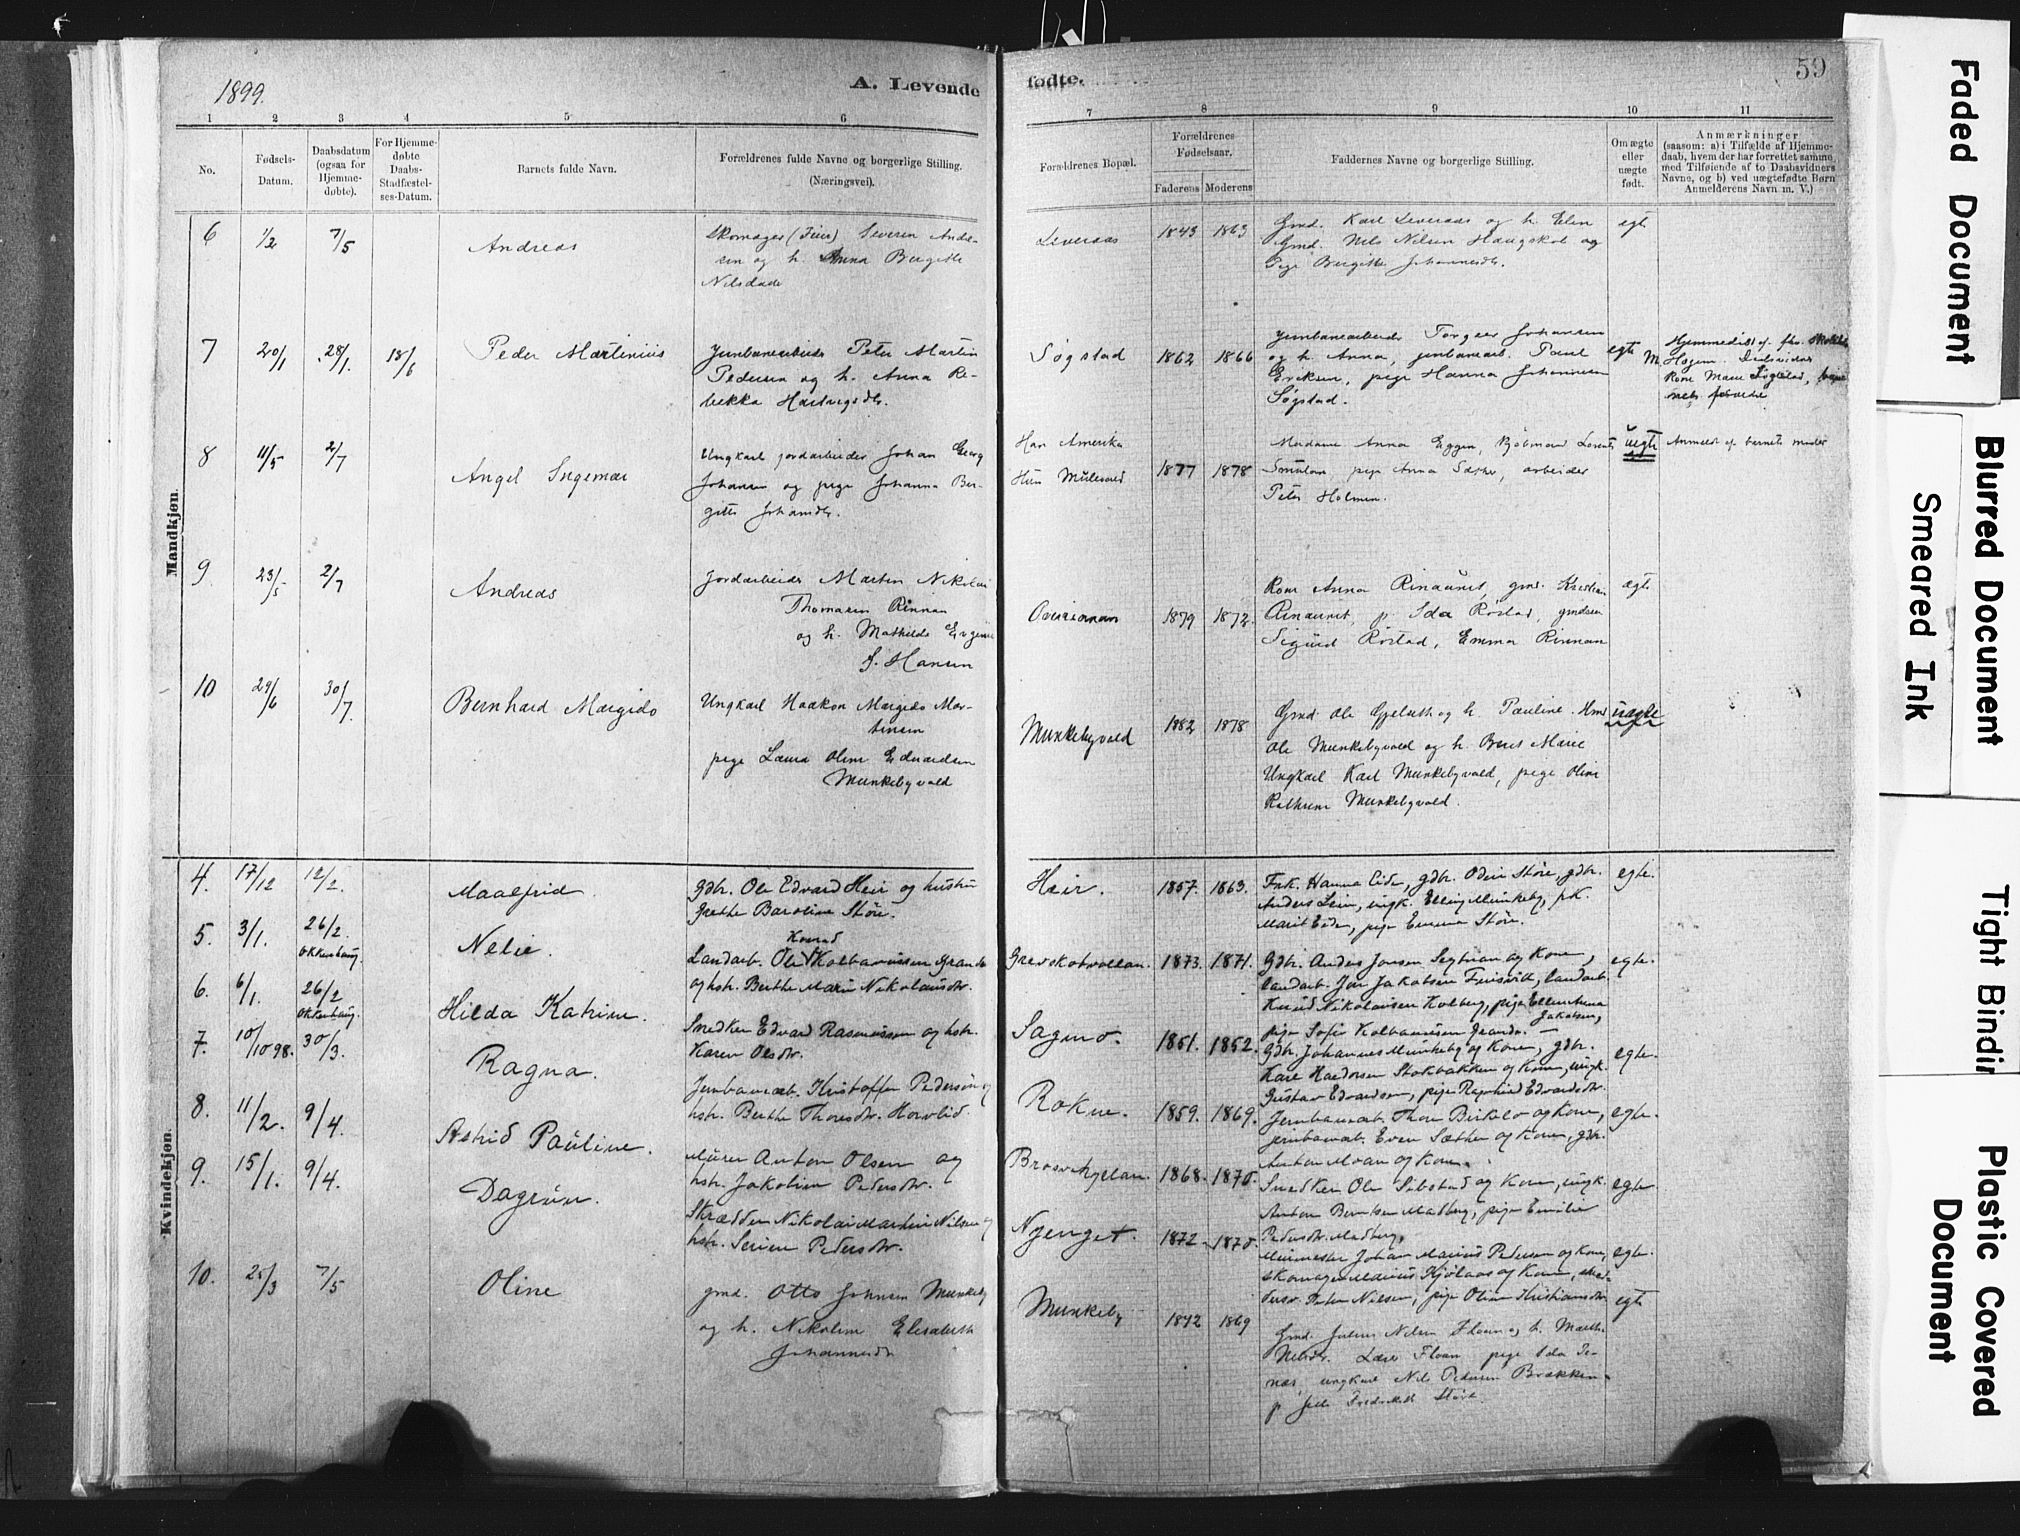 1899.
A. Levende
fødte.
59
1 2 3 4 5 6 7 8 9 10 11
No.
Fødsels-
Datum.
Daabsdatum
(ogsaa for
Hjemme-
døbte).
For Hjemme-
døbte
Daabs-
Stadfæstel-
ses-Datum.
Barnets fulde Navn.
Forældrenes fulde Navne og borgerlige Stilling.
(Næringsvei).
Forældrenes Bopæl.
Forældrenes
Fødselsaar.
Faderens Moderens
Faddernes Navne og borgerlige Stilling.
Om ægte
eller
uægte
født.
Anmærkninger
(saasom: a) i Tilfælde af Hjemme-
daab, hvem der har forrettet samme
med Tilføiende af to Daabsvidners
Navne, og b) ved uægtefødte Børn
Anmelderens Navn m. V.)
Mandkjøn.
6 1/2 7/5
Andreas
Skomager (Feier) Severin Andre-
sen og h. Anna Bergitte
Nilsdatter
Leveraas
1843 1863
Gmd. Karl Leveraas og h. Elen
Gmd. Nils Nilsen Haugskot og
Pige Bergitte Johannesdr.
egte
7 20/1 28/1 18/6
Peder Martinius
Jernbanearbeider Peter Martin
Pedersen og h. Anna Re-
bekka Hartvigsdr.
Søgstad
1862 1866
Jernbanearbeider Torgeer Johansen
og h. Anna, jernbanearb. Paul
Eriksen, pige Hanna Johannesen
Søgstad.
egte
Hjemmedøbt af
Kone Marie Søgstad,
8 11/5 2/7
Angel Ingemar
Ungkarl jordarbeider Johan Georg
Johansen og pige Johanna Ber-
gitte Johansdr.
Han Amerika
Hun Mulevold
1877 1878
Madame Anna Eggen, Kjøbmand Lorents
pige Anna Sæther, arbeider
Peter Holmen.
uegte
Anmeldt af barnets moder
9 23/5 2/7
Andreas
Jordarbeider Morten Nikolai
Thomasen Rinnan
og h. Mathilde Eugenie
J. Hansen
Overrinnan
1879 1872.
Kone Anna Rinaunet, gmd. Kristian
Rinaunet, p. Ida Røstad, gmdsøn
Sigurd Røstad, Emma Rinnan
ægte
10 29/6 30/7
Bernhard Margido
Ungkarl Haakon Margido Mor-
tensen
pige Laura Oline Edvardsen
Munkebyvald
Munkebyvald
1882 1878
Gmd. Ole Gjelseth og h. Pauline. Hmd
Ole Munkebyvald og h. Beret Marie
Ungkarl Karl Munkebyvald, pige Oline
Kathrine Munkebyvald.
uægte
Kvindekjøn.
4. 17/12 12/2.
Maalfrid.
Gdbr. Ole Edvard Heir og hustru
Grethe Baroline Støre.
Heir.
1857. 1863.
Frk. Hanna Eide, gdbr. Odin Støre, gdbr.
Anders Lein, ungk. Elling Munkeby, pk.
Marit Eide, pige Emma Støre.
egte.
5. 3/1. 26/2.
Okkenhaug.
Nelie.
Konrad
Landarb. Ole Kolbanussen Grande
og hstr. Berthe Marie Nikolaisdtr.
Grevskotvollan.
1873. 1871.
Gdbr. Anders Jonsen Segtnan og Kone,
landarb. Jon Jakobsen Finsvith, landarb.
Knud Nikolaisen Kolberg, pige Ellen Anna
Jakobsen,
pige Sofie Kolbanussen Grande. —
egte.
6. 6/1. 26/2
Okkenhaug.
Hilda Katrine.
Snedker Edvard Rasmussen og hstr.
Karen Olsdtr.
Sagmo.
1851. 1852.
Gdbr. Johannes Munkeby og Kone, gdbr.
Karl Haldorsen Stokbakken og Kone, ungk.
Gustav Edvardsen, pige Ragnhild Edvardsdtr.
egte.
7. 10/10 98. 30/3.
Ragna.
Jernbanearb. Kristoffer Pedersen og
hstr. Berthe Thoresdtr. Hovlid.
Rokne.
1859. 1869.
Jernbanearb. Thore Birkelo og Kone,
jernbanearb. Even Sæther og Kone, gdbr.
Anton Moan og Kone.
egte.
8. 11/2. 9/4.
Astrid Pauline.
Murer Anton Olsen og
hstr. Jakobine Pedersdtr.
1868. 1870.
Snedker Ole Sibstad og Kone, ungk.
Anton Berntsen Madberg, pige Emilie
Pedersdtr. Madberg,
egte.
9. 15/1. 9/4.
Dagrun.
Skrædder Nikolai Martin Nilsen og
hstr. Serine Pedersdtr.
Nyenget.
1872. 1870.
Murmester Johan Marius Pedersen og Kone,
skomager Marius Kjølaas og Kone,
Peter Nilsen, pige Oline Kristiansdtr
egte.
10. 25/3 7/5
Oline
gmd. Otto Johnsen Munkeby
og h. Nikoline Elisabeth
Johannesdtr
Munkeby
1872 1869
Gmd. Julius Nilsen Floan og h. Marth.
Nilsdr. Lars Floan pige Ida
ungkarl Nils Pedersen Brækken
Fredrikke Støre.
egte
Faded Document
Blurred Document
Smeared Ink
Tight Bindin
Plastic Covered
Document